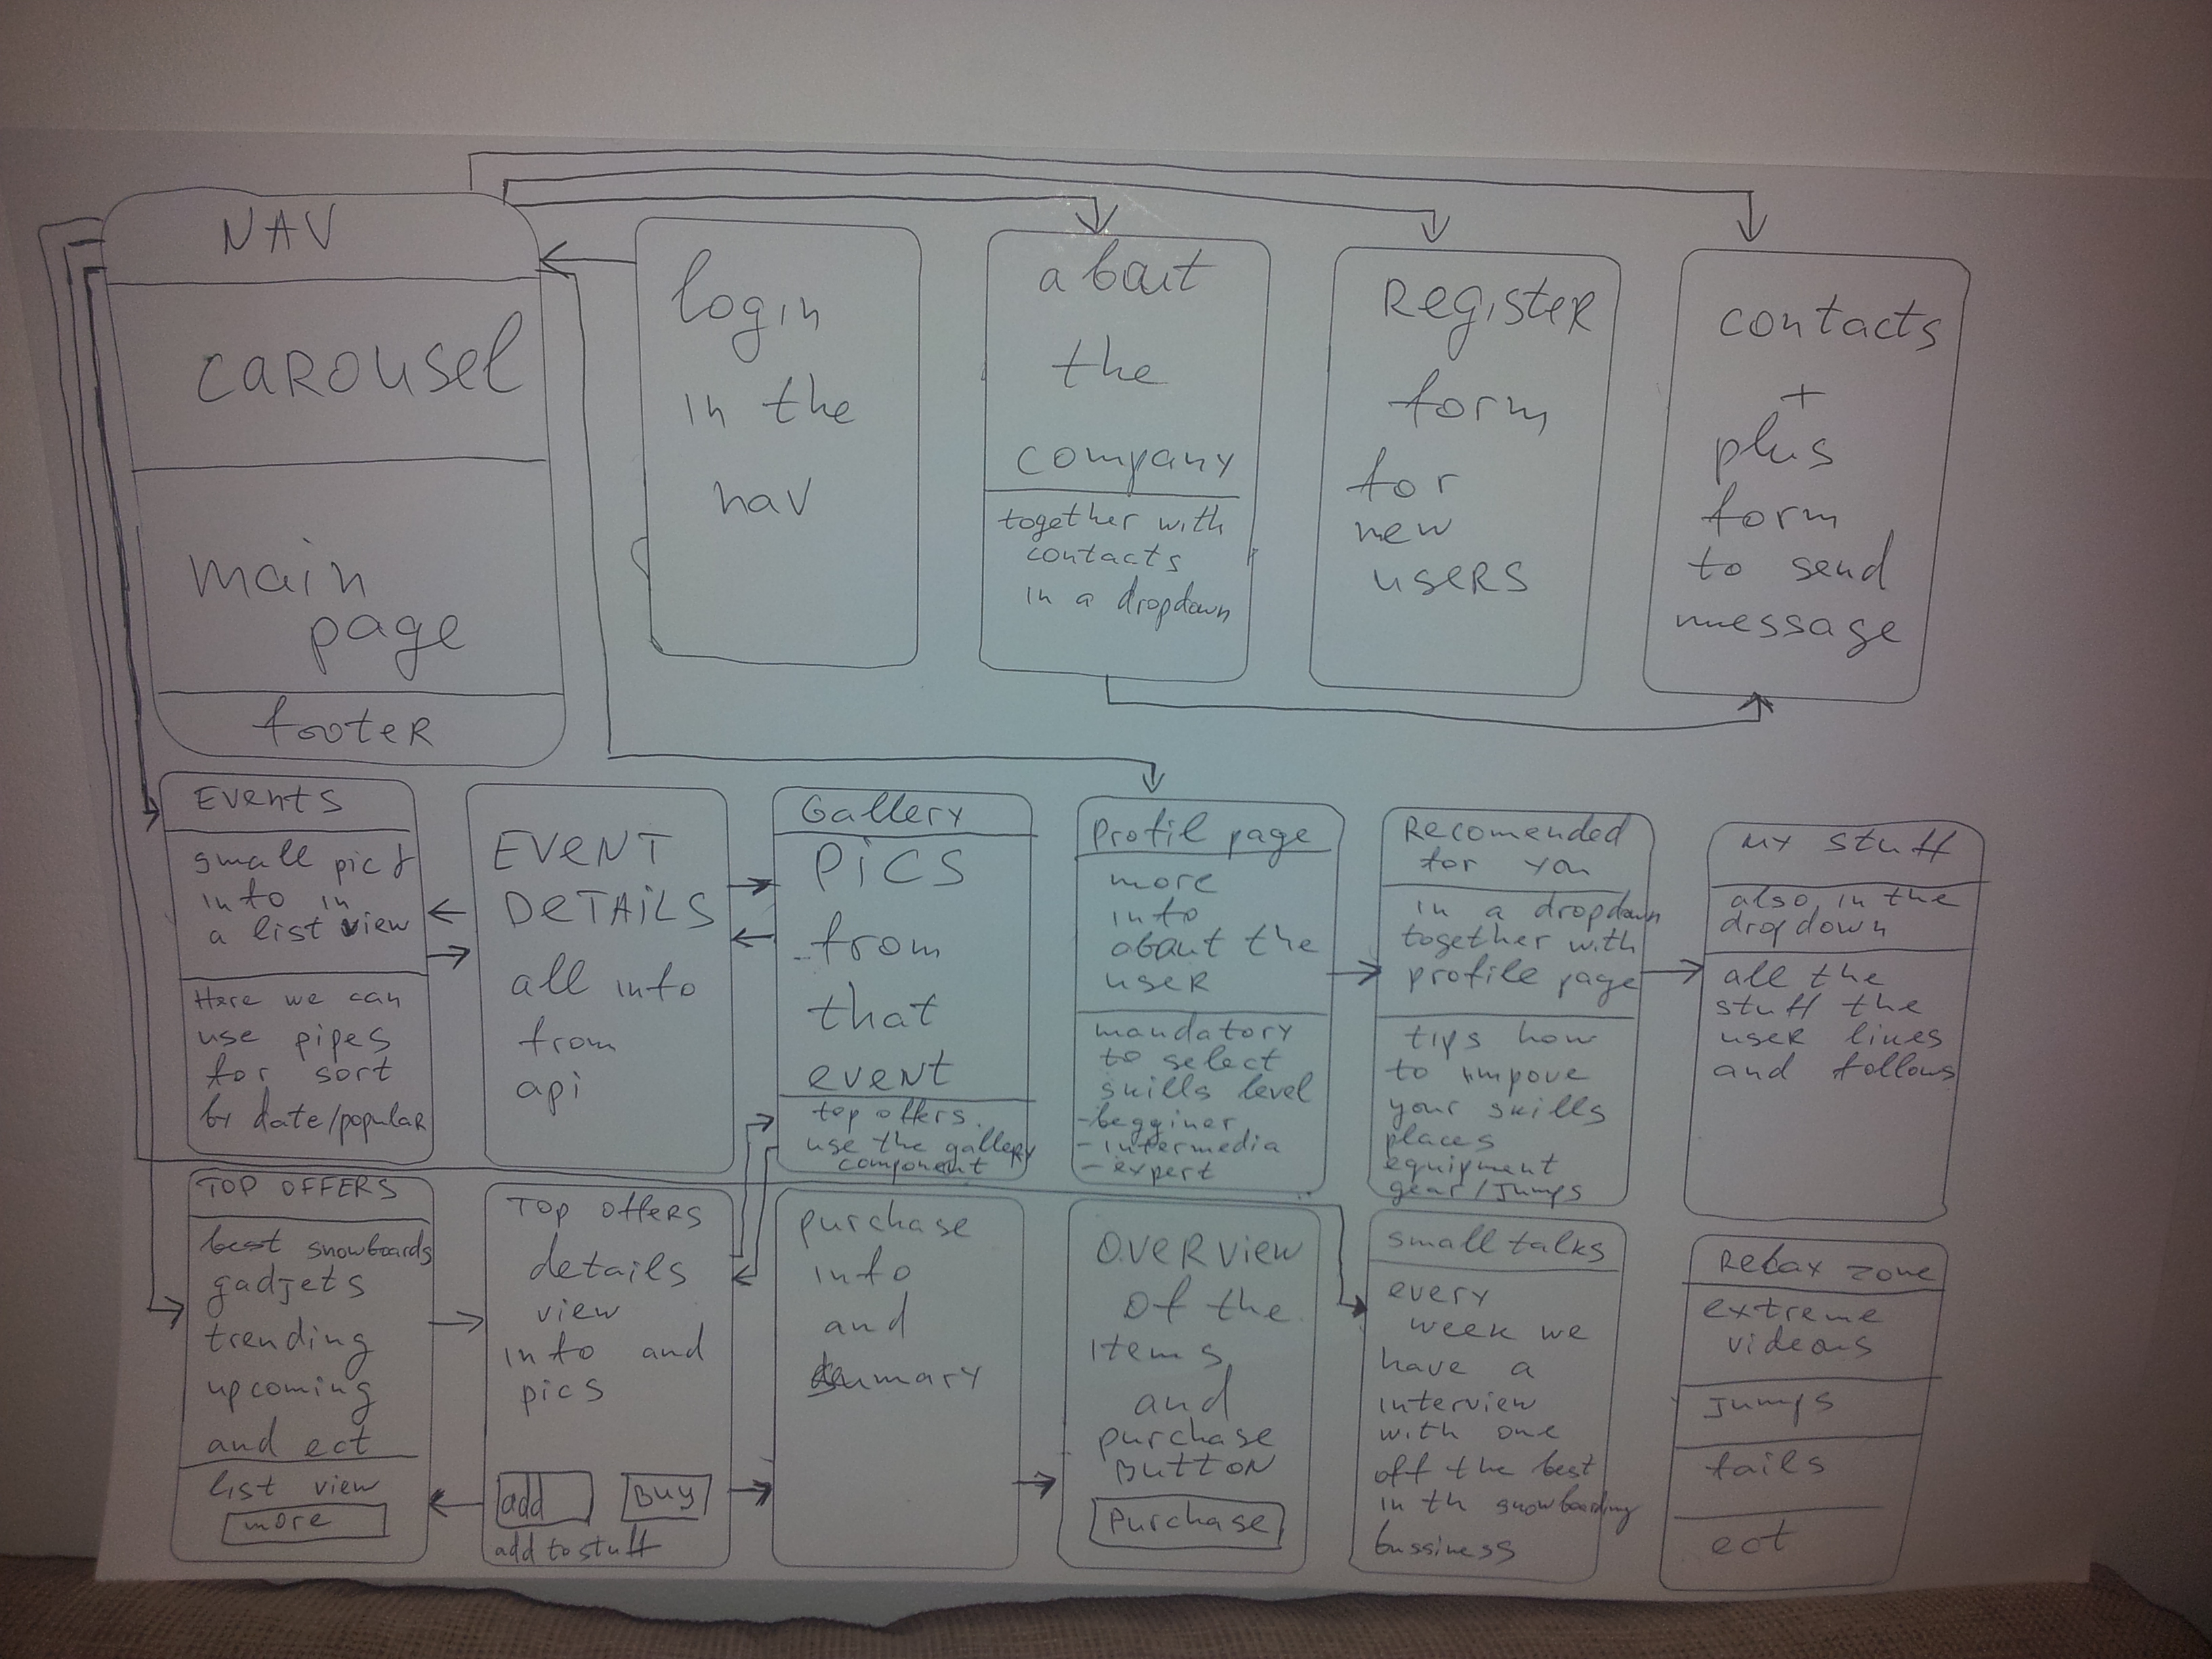 NAV
CAROUSEL
main
page
footer
login
in the
nav
about
the
company
together with
contacts
in a dropdown
Register
form
for
new
users
contacts
+
plus
form
to send
message
Events
small pics
info in
a list view
Here we can
use pipes
for sort
by date/popular
EVENT
DETAILS
all info
from
api
Gallery
PICS
from
that
event
top offers
use the gallery
component
Profil page
more
info
about the
user
mandatory
to select
skills level
-begginer
-intermedia
-expert
Recomended
for you
in a dropdown
together with
profile page
tips how
to impove
your skills
places
equipment
gear/jumps
my stuff
also in the
dropdown
all the
stuff the
user likes
and follows
TOP OFFERS
best snowboards
gadjets
trending
upcoming
and ect
list view
more
Top offers
details
view
info and
pics
add
Buy
add to stuff
purchase
info
and
sumary
OVERview
of the
items
and
purchase
BUTTON
Purchase
small talks
every
week we
have a
interview
with one
off the best
in th snowboarding
bussiness
Relax zone
extreme
videous
Jumps
fails
ect